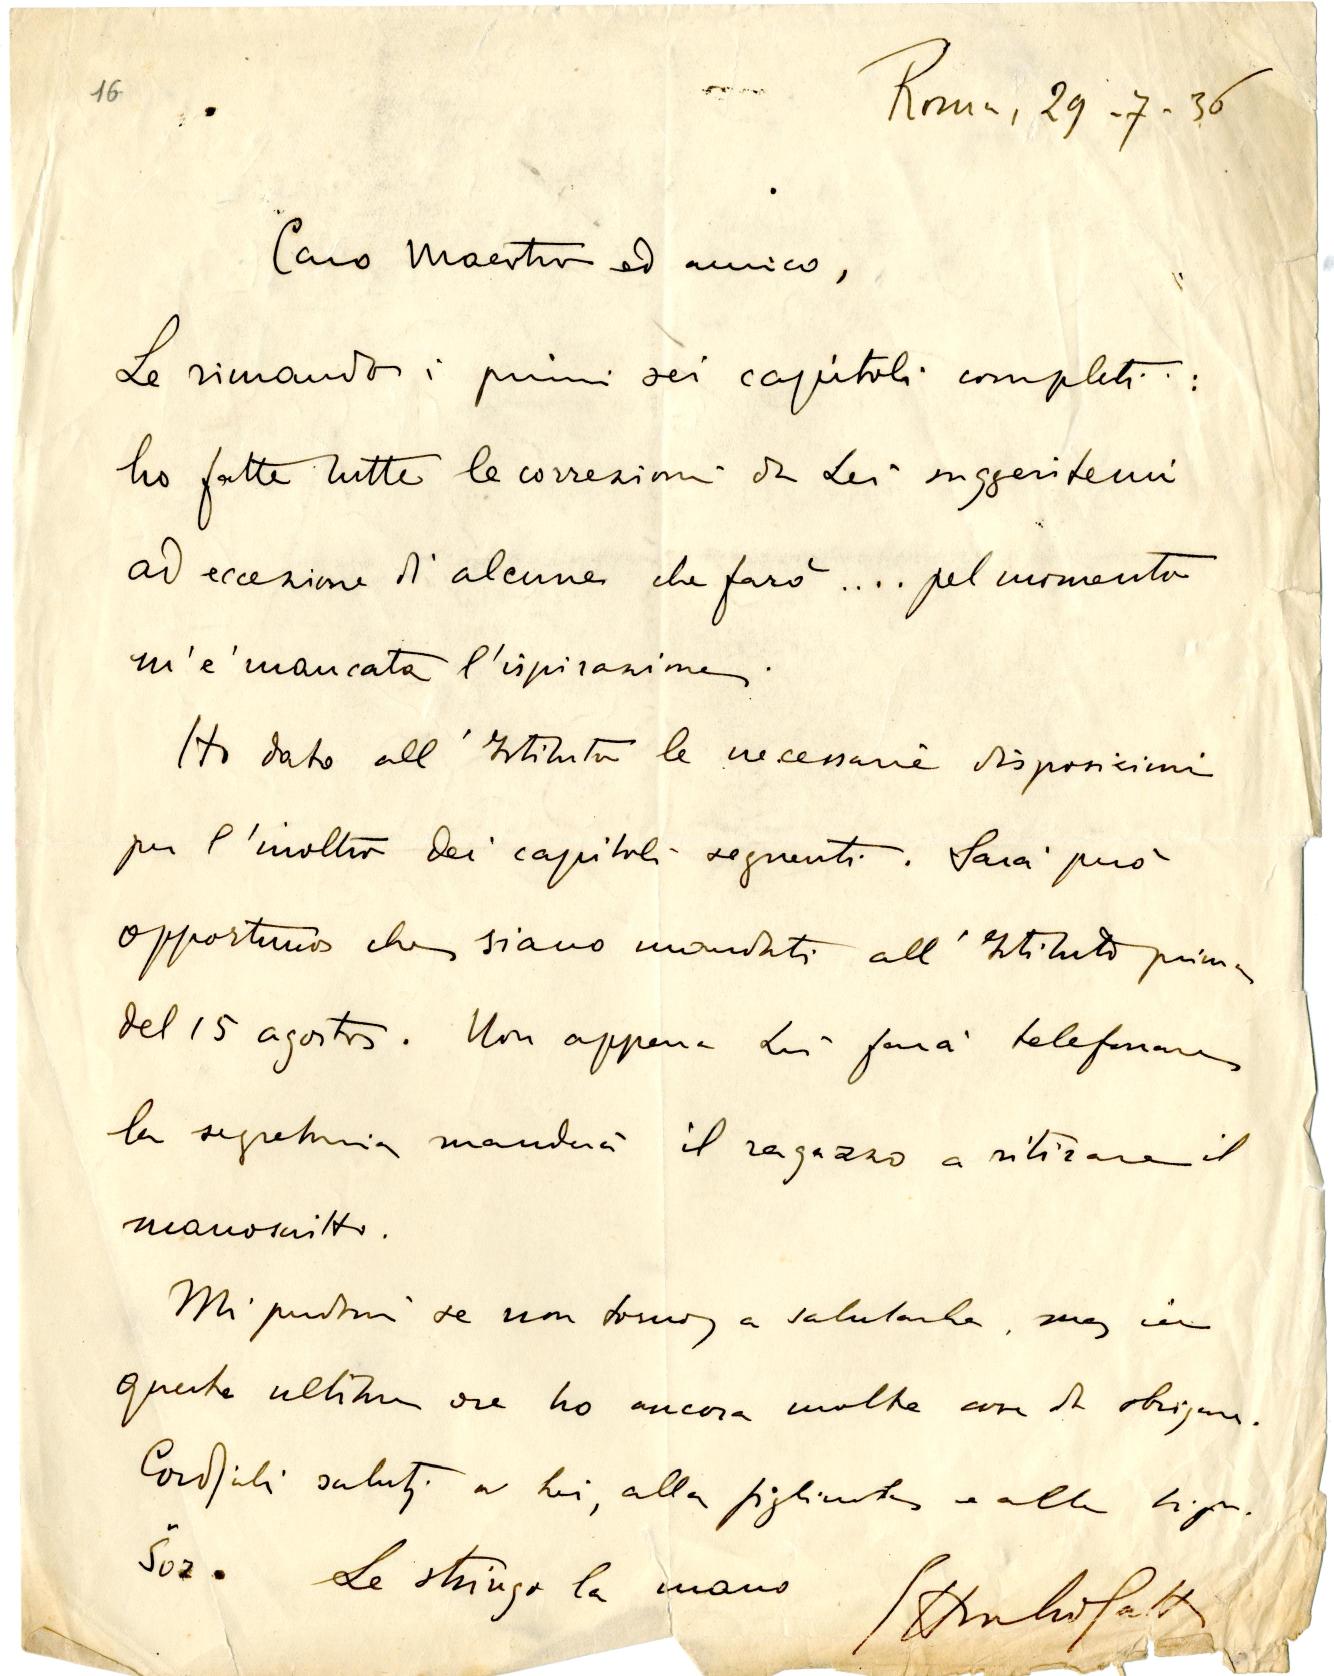 16
Roma, 29-7-36
Caro Maestro ed amico,
Le rimando i primi sei capitoli completi:
ho fatte tutte le correzioni da Lei suggeritemi
ad eccezione di alcune che farò.... pel momento
m'è mancata l'ispirazione.
Ho dato all'Istituto le necessarie disposizioni
per l'inoltro dei capitoli seguenti. Sarà però
opportuno che siano mandati all'Istituto prima
del 15 agosto. Non appena Lei farà telefonare
la segreteria manderà il ragazzo a ritirare il
manoscritto.
Mi perdoni se non torno a salutarla, ma in
queste ultime ore ho ancora molte cose da sbrigare.
Cordiali saluti a Lei, alla figliuola e alla sign.
Šoz. Le stringo la mano